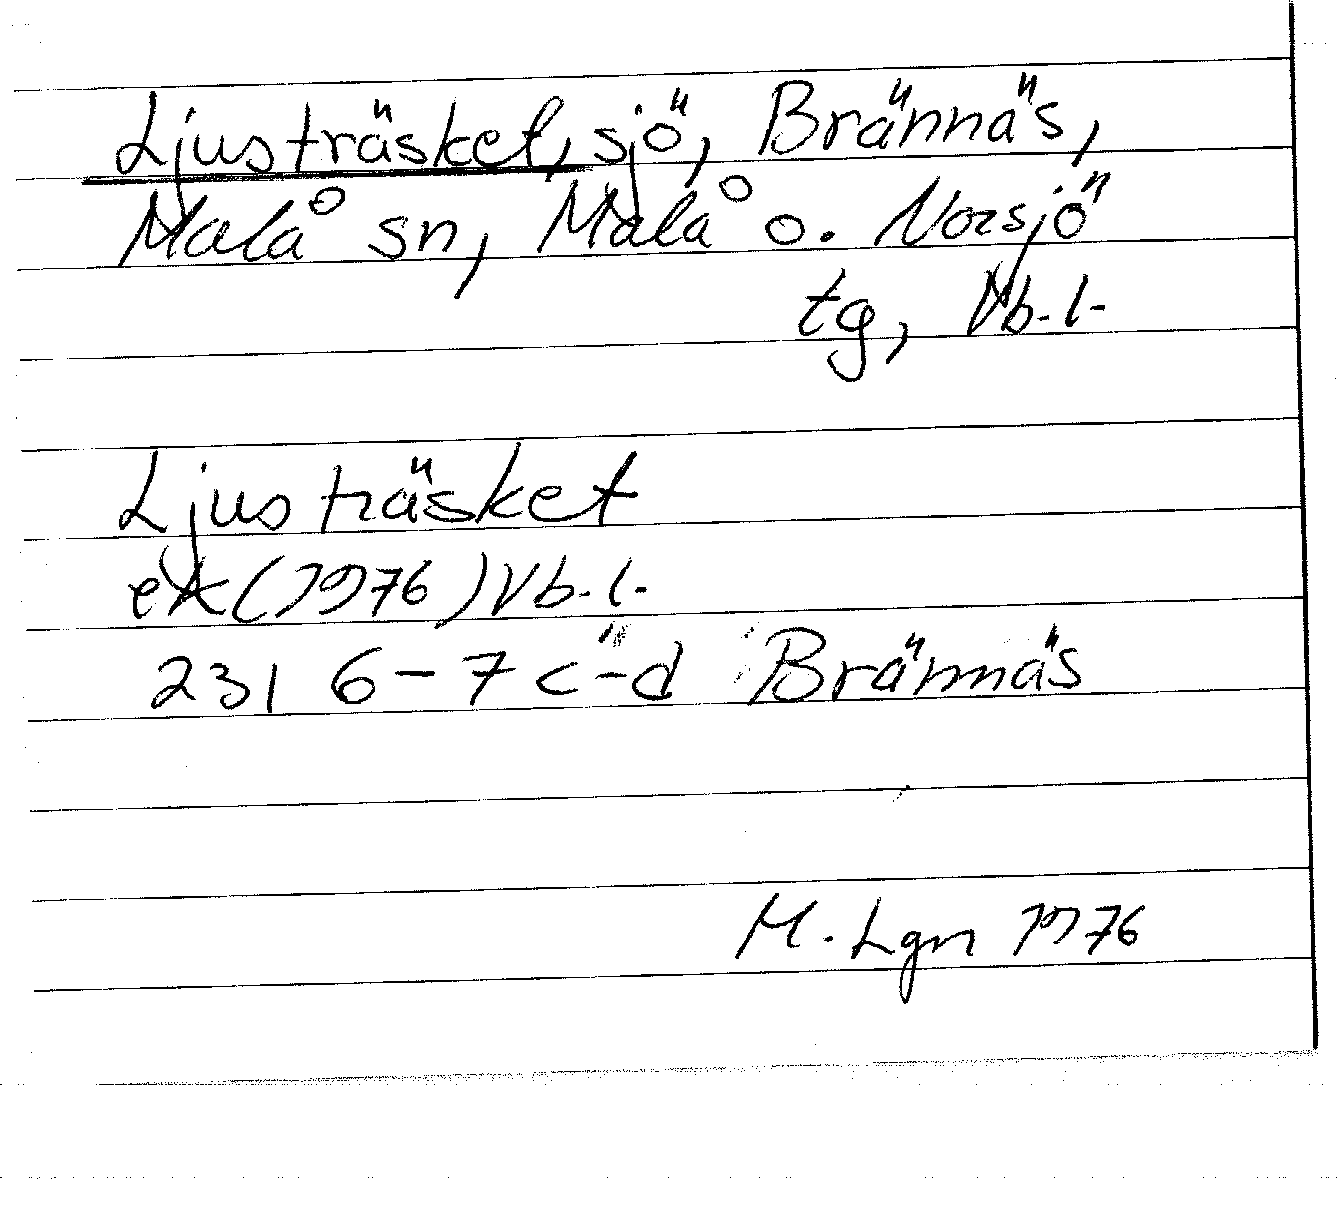 Ljusträsket, sjö, Brännäs,
Malå sn, Malå o. Norsjö
tg, Vb. l.
Ljusträsket
ek (1976) Vb. l.
231 6-7 c-d Brännäs
M. Lgn 1976